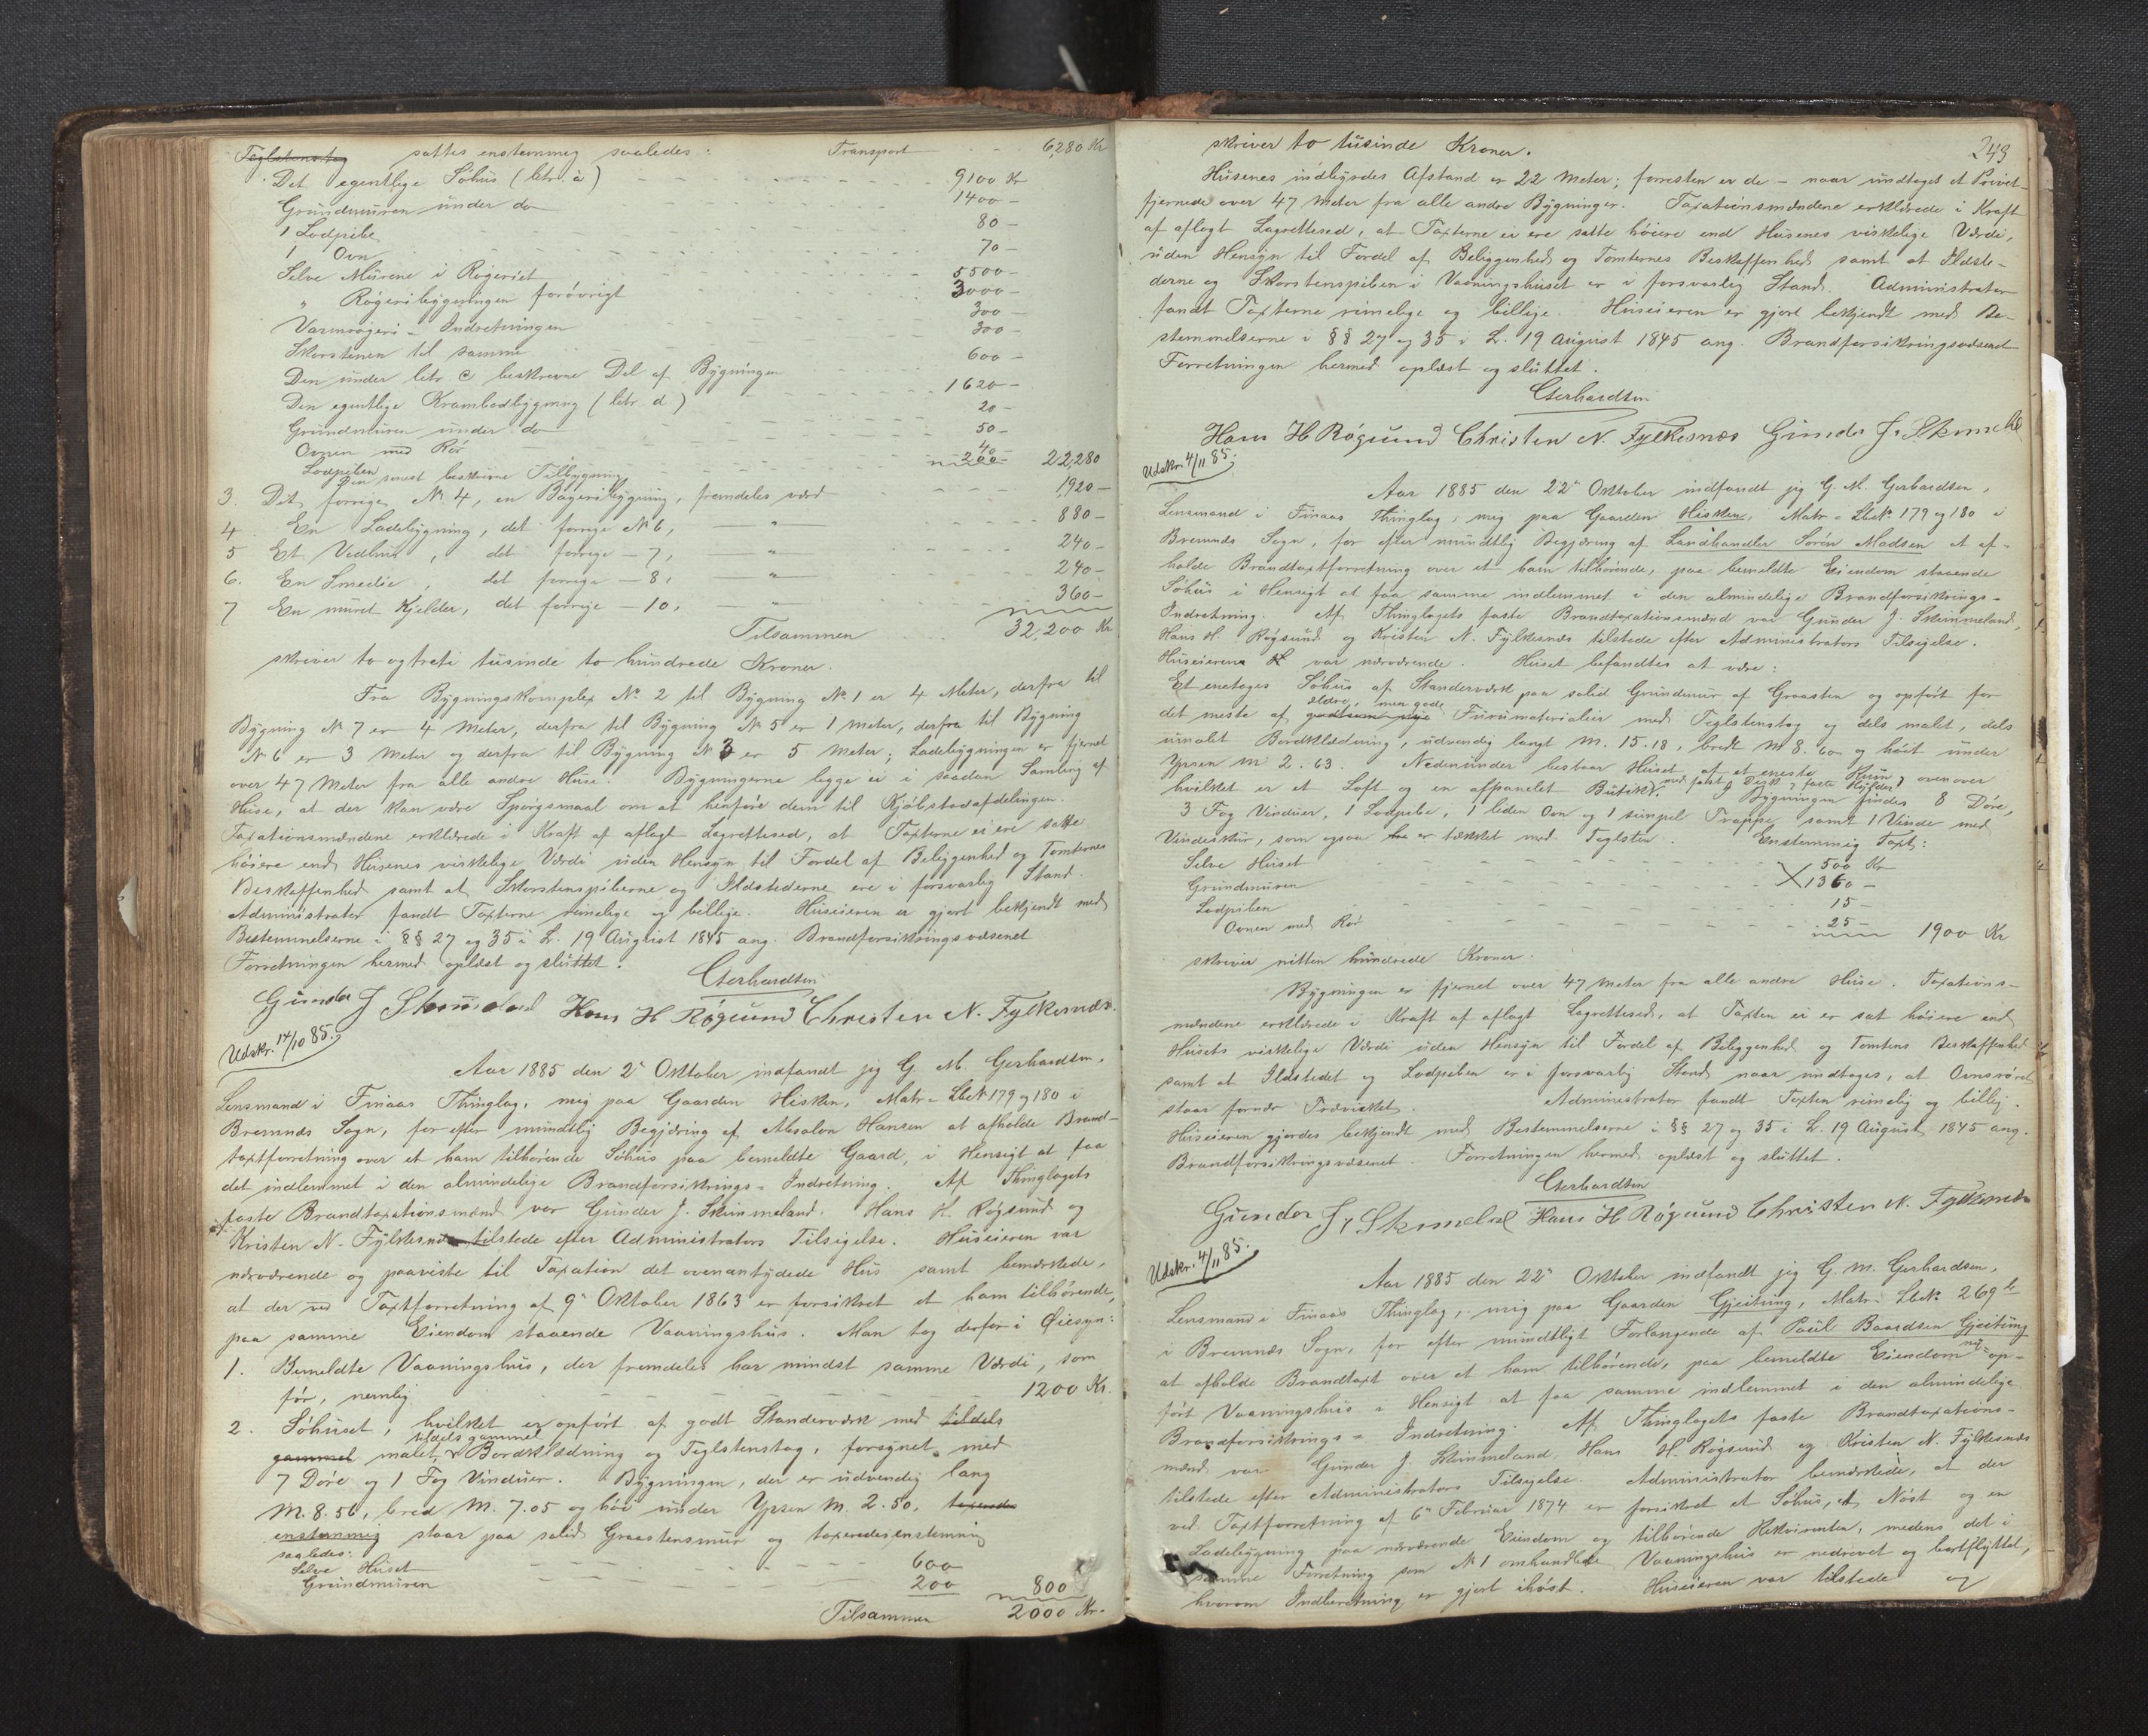 Teglstenstag sattes enstemmig saaledes: Transport 6,280 Kr
Det egentlige Söhus (letr. a) 9100 Kr
Grundmuren under do 1400 –
1 Lodpibe 80 –
1 Ovn 70 –
Selve Murene i Røgeriet 5500 –
„ Røgeribygningen forövrigt 3000 –
Varmrøgeri-Indretningen 300 –
Skorstenen til samme 300 –
Den under letr. c beskrevne Del af Bygningen 600 –
Den egentlige Krambodbygning (letr. d) 1620 –
Grundmuren under do 20 –
Ovnen med Rör 50 –
Lodpiben 40 –
Den senest beskrevne Tilbygning 200 – 22,280
3. Det forrige No 4, en Bageribygning, fremdeles værd 1,920 –
4. En Ladebygning, det forrige No 6, — „ — 880 –
5 Et Vedhus, det forrige – 7, — „ — 240 –
6. En Smedie, det forrige – 8, — „ — 240 –
7 En muret Kjelder, det forrige – 10, — „ — 360 –
Tilsammen 32,200 Kr
skriver to og treti tusinde to hundrede Kroner.
Fra Bygningskomplex No 2 til Bygning No 1 er 4 Meter, derfra til
Bygning No 7 er 4 Meter, derfra til Bygning No 5 er 1 Meter, derfra til Bygning
No 6 er 3 Meter og derfra til Bygning No 3 er 5 Meter; Ladebygningen er fjernet
over 47 Meter fra alle andre Huse. Bygningerne ligge ei i saadan Samling af
Huse, at der kan være Spørgsmaal om at henføre dem til Kjöbstadafdelingen.
Taxationsmændene erklærede i Kraft af aflagt Lagrettesed, at Taxterne ei ere satte
höiere end Husenes virkelige Værdi uden Hensyn til Fordel af Beliggenhed og Tomternes
Beskaffenhed samt at Skorstenspiberne og Ildstederne ere i forsvarlig Stand.
Administrator fandt Taxterne rimelige og billige. Huseieren er gjort bekjendt med
Bestemmelserne i §§ 27 og 35 i L. 19 August 1845 ang. Brandforsikringsvæsenet
Forretningen hermed oplæst og sluttet.
Gerhardsen
Gunder J Skimeland Hans H Røgsund Christen N. Fylkesnæs.
Udskr. 14/10 85.
Aar 1885 den 2. Oktober indfandt jeg G. M. Gerhardsen,
Lensmand i Finaas Thinglag, mig paa Gaarden Hisken, Matr-Lbek 179 og 180 i
Bremnæs Sogn, for efter mundtlig Begjæring af Absalon Hansen at afholde Brand-
taxtforretning over et ham tilhørende Söhus paa bemeldte Gaard, i Hensigt at faa
det indlemmet i den almindelige Brandforsikrings-Indretning. Af Thinglagets
faste Brandtaxationsmænd var Gunder J. Skimmeland, Hans H. Røgsund og
Kristen N. Fylkesnæs tilstede efter Administrators Tilsigelse. Huseieren var
nærværende og paaviste til Taxation det ovenantydede Hus samt bemærkede,
at der ved Taxtforretning af 9. Oktober 1863 er forsikret et ham tilhørende,
paa samme Eiendom staaende Vaaningshus. Man tog derfor i Øiesyn:
1. Bemeldte Vaaningshus, der fremdeles har mindst samme Værdi, som
før, nemlig 1200 Kr.
2. Söhuset, hvilket er opfört af godt Standerværk med tildels
tildels gammel
gammel malet Bordklædning og Teglstenstag, forsynet med
7 Döre og 1 Fag Vinduer. Bygningen, der er udvendig lang
M. 8.50, bred M. 7.05 og höi under Ypsen M. 2.50, taxeredes
enstemmig staar paa solid Graastensmur og taxeredes enstemmig
saaledes:
Selve Huset 600
Grundmuren 200 800
Tilsammen 2000 Kr.
243
skriver to tusinde Kroner.
Husenes indbyrdes Afstand er 22 Meter; forresten er de – naar undtages et Privet –
fjernede over 47 Meter fra alle andre Bygninger. Taxationsmændene erklærede i Kraft
af aflagt Lagrettesed, at Taxterne ei ere satte höiere end Husenes virkelige Værdi,
uden Hensyn til Fordel af Beliggenhed og Tomternes Beskaffenhed samt at Ildste-
derne og Skorstenspiben i Vaaningshuset er i forsvarlig Stand. Administrator
fandt Taxterne rimelige og billige. Huseieren er gjort bekjendt med Be-
stemmelserne i §§ 27 og 35 i L. 19 August 1845 ang. Brandforsikringsvæsenet
Forretningen hermed oplæst og sluttet.
Gerhardsen
Hans H Røgsund Christen N. Fylkesnæs Gunder J. Skimeld
Udskr. 4/11 85.
Aar 1885 den 22. Oktober indfandt jeg G. M. Gerhardsen,
Lensmand i Finaas Thinglag, mig paa Gaarden Hisken, Matr-Lbek 179 og 180 i
Bremnæs Sogn, for efter mundtlig Begjæring af Landhandler Sören Madsen at af-
holde Brandtaxtforretning over et ham tilhørende, paa bemeldte Eiendom staaende
Söhus i Hensigt at faa samme indlemmet i den almindelige Brandforsikrings-
Indretning. Af Thinglagets faste Brandtaxationsmænd var Gunder J. Skimmeland,
Hans H. Røgsund og Kristen N. Fylkesnæs tilstede efter Administrators Tilsigelse.
Huseieren var nærværende. Huset befandtes at være:
Et enetages Söhus af Standerværk paa solid Grundmur af Graasten og opfört for
ældre, men gode
det meste af Furumaterialier med Teglstenstag og dels malet, dels
umalet Bordklædning, udvendig langt M. 15.18, bredt M. 8.60 og höit under
Ypsen M. 2.63. Nedenunder bestaar Huset af et eneste Rum, ovenover
med fast Disk og faste Hylder
hvilket er et Loft og en afpanelet Butik. I Bygningen findes 8 Döre,
3 Fag Vinduer, 1 Lodpibe, 1 liden Ovn og 1 simpel Trappe samt 1 Vinde med
Vindeskur, som ogsaa er tækket med Teglsten. Enstemmig Taxt:
Selve Huset 500 Kr
Grundmuren 1360 –
Lodpiben 15 –
Ovnen med Rör 25 – 1900 Kr
skriver nitten hundrede Kroner.
Bygningen er fjernet over 47 Meter fra alle andre Huse. Taxations-
mændene erklærede i Kraft af aflagt Lagrettesed, at Taxten ei er sat höiere end
Husets virkelige Værdi uden Hensyn til Fordel af Beliggenhed og Tomtens Beskaffenhed
samt at Ildstedet og Lodpiben er i forsvarlig Stand naar undtages, at Ovnsröret
staar fornær Trævirket. Administrator fandt Taxten rimelig og billig.
Huseieren gjordes bekjendt med Bestemmelserne i §§ 27 og 35 i L. 19 August 1845 ang.
Brandforsikringsvæsenet. Forretningen hermed oplæst og sluttet.
Gerhardsen
Gunder J. Skimeland Hans H Røgsund Christen N. Fylkesnæs
Udskr. 4/11 85.
Aar 1885 den 22. Oktober indfandt jeg G. M. Gerhardsen,
Lensmand i Finaas Thinglag, mig paa Gaarden Gjeitung, Matr. Lbek 269 b
i Bremnæs Sogn, for efter mundtligt Forlangende af Paul Baardsen Gjeitung
at afholde Brandtaxt over et ham tilhørende, paa bemeldte Eiendom ny-op-
fört Vaaningshus i Hensigt at faa samme indlemmet i den almindelige
Brandforsikrings-Indretning. Af Thinglagets faste Brandtaxations-
mænd var Gunder J. Skimmeland, Hans H. Røgsund og Kristen N. Fylkesnæs
tilstede efter Administrators Tilsigelse. Administrator bemærkede, at der
ved Taxtforretning af 6. Februar 1874 er forsikret et Söhus, et Nöst og en
Ladebygning paa nærværende Eiendom og tilhørende Rekvirenten, medens det i
samme Forretning som No 1 omhandlede Vaaningshus er nedrevet og bortflyttet,
hvorom Indberetning er gjort ihöst. Huseieren var tilstede og